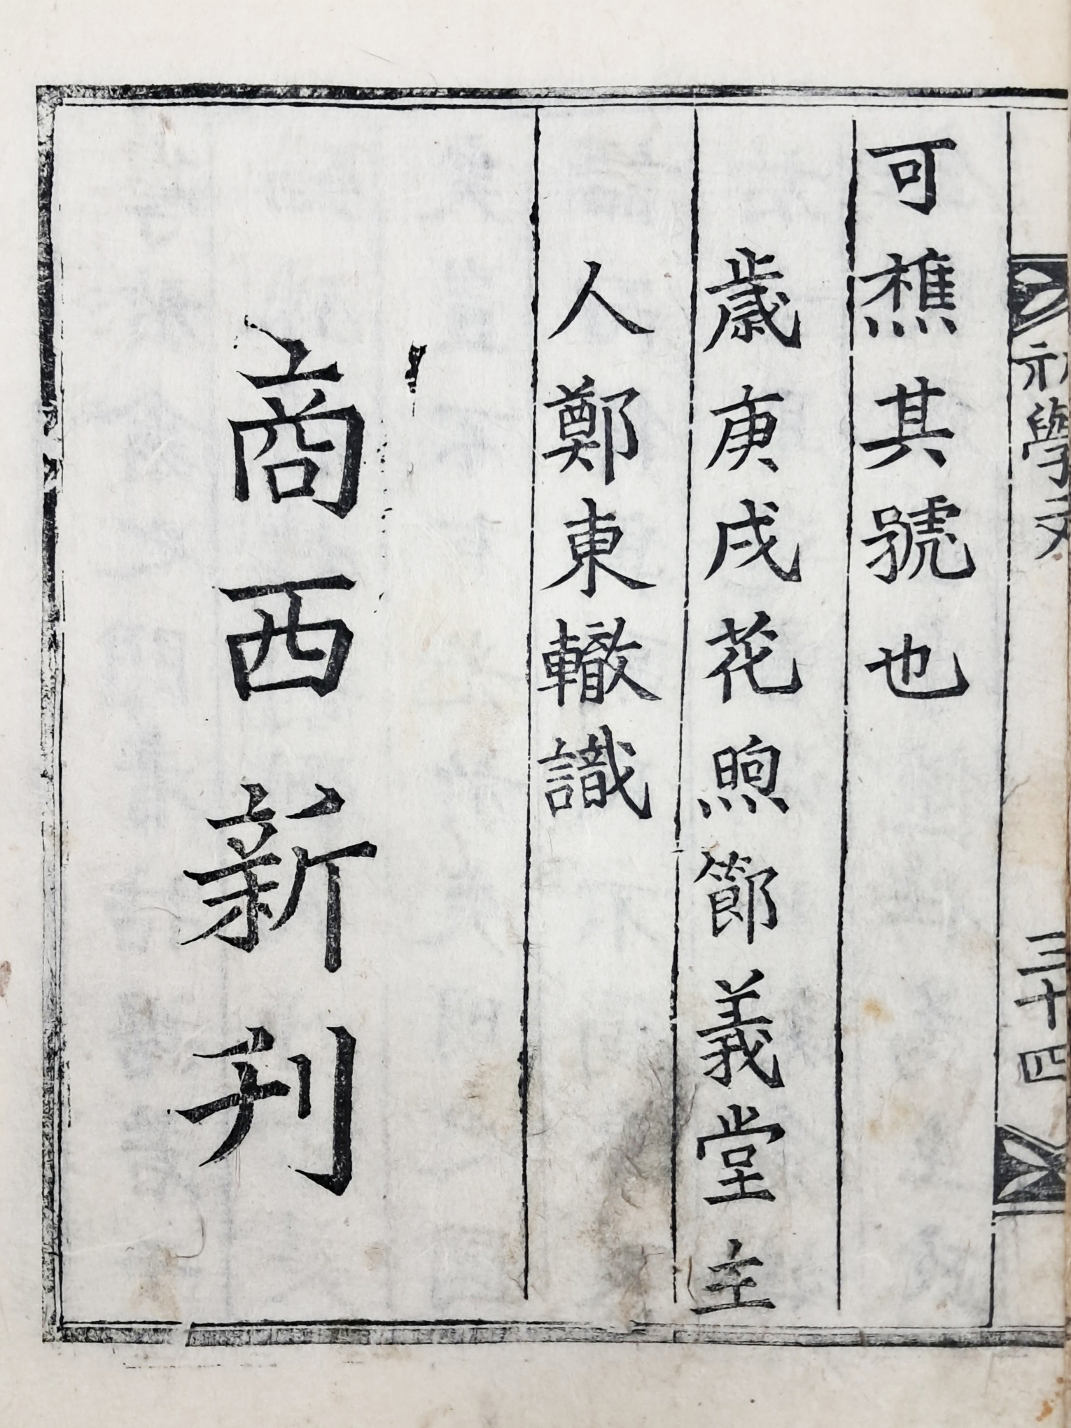 初學文
三十四
可樵其號也
歲庚戌花煦節義堂主
人鄭東轍識
商西新刊